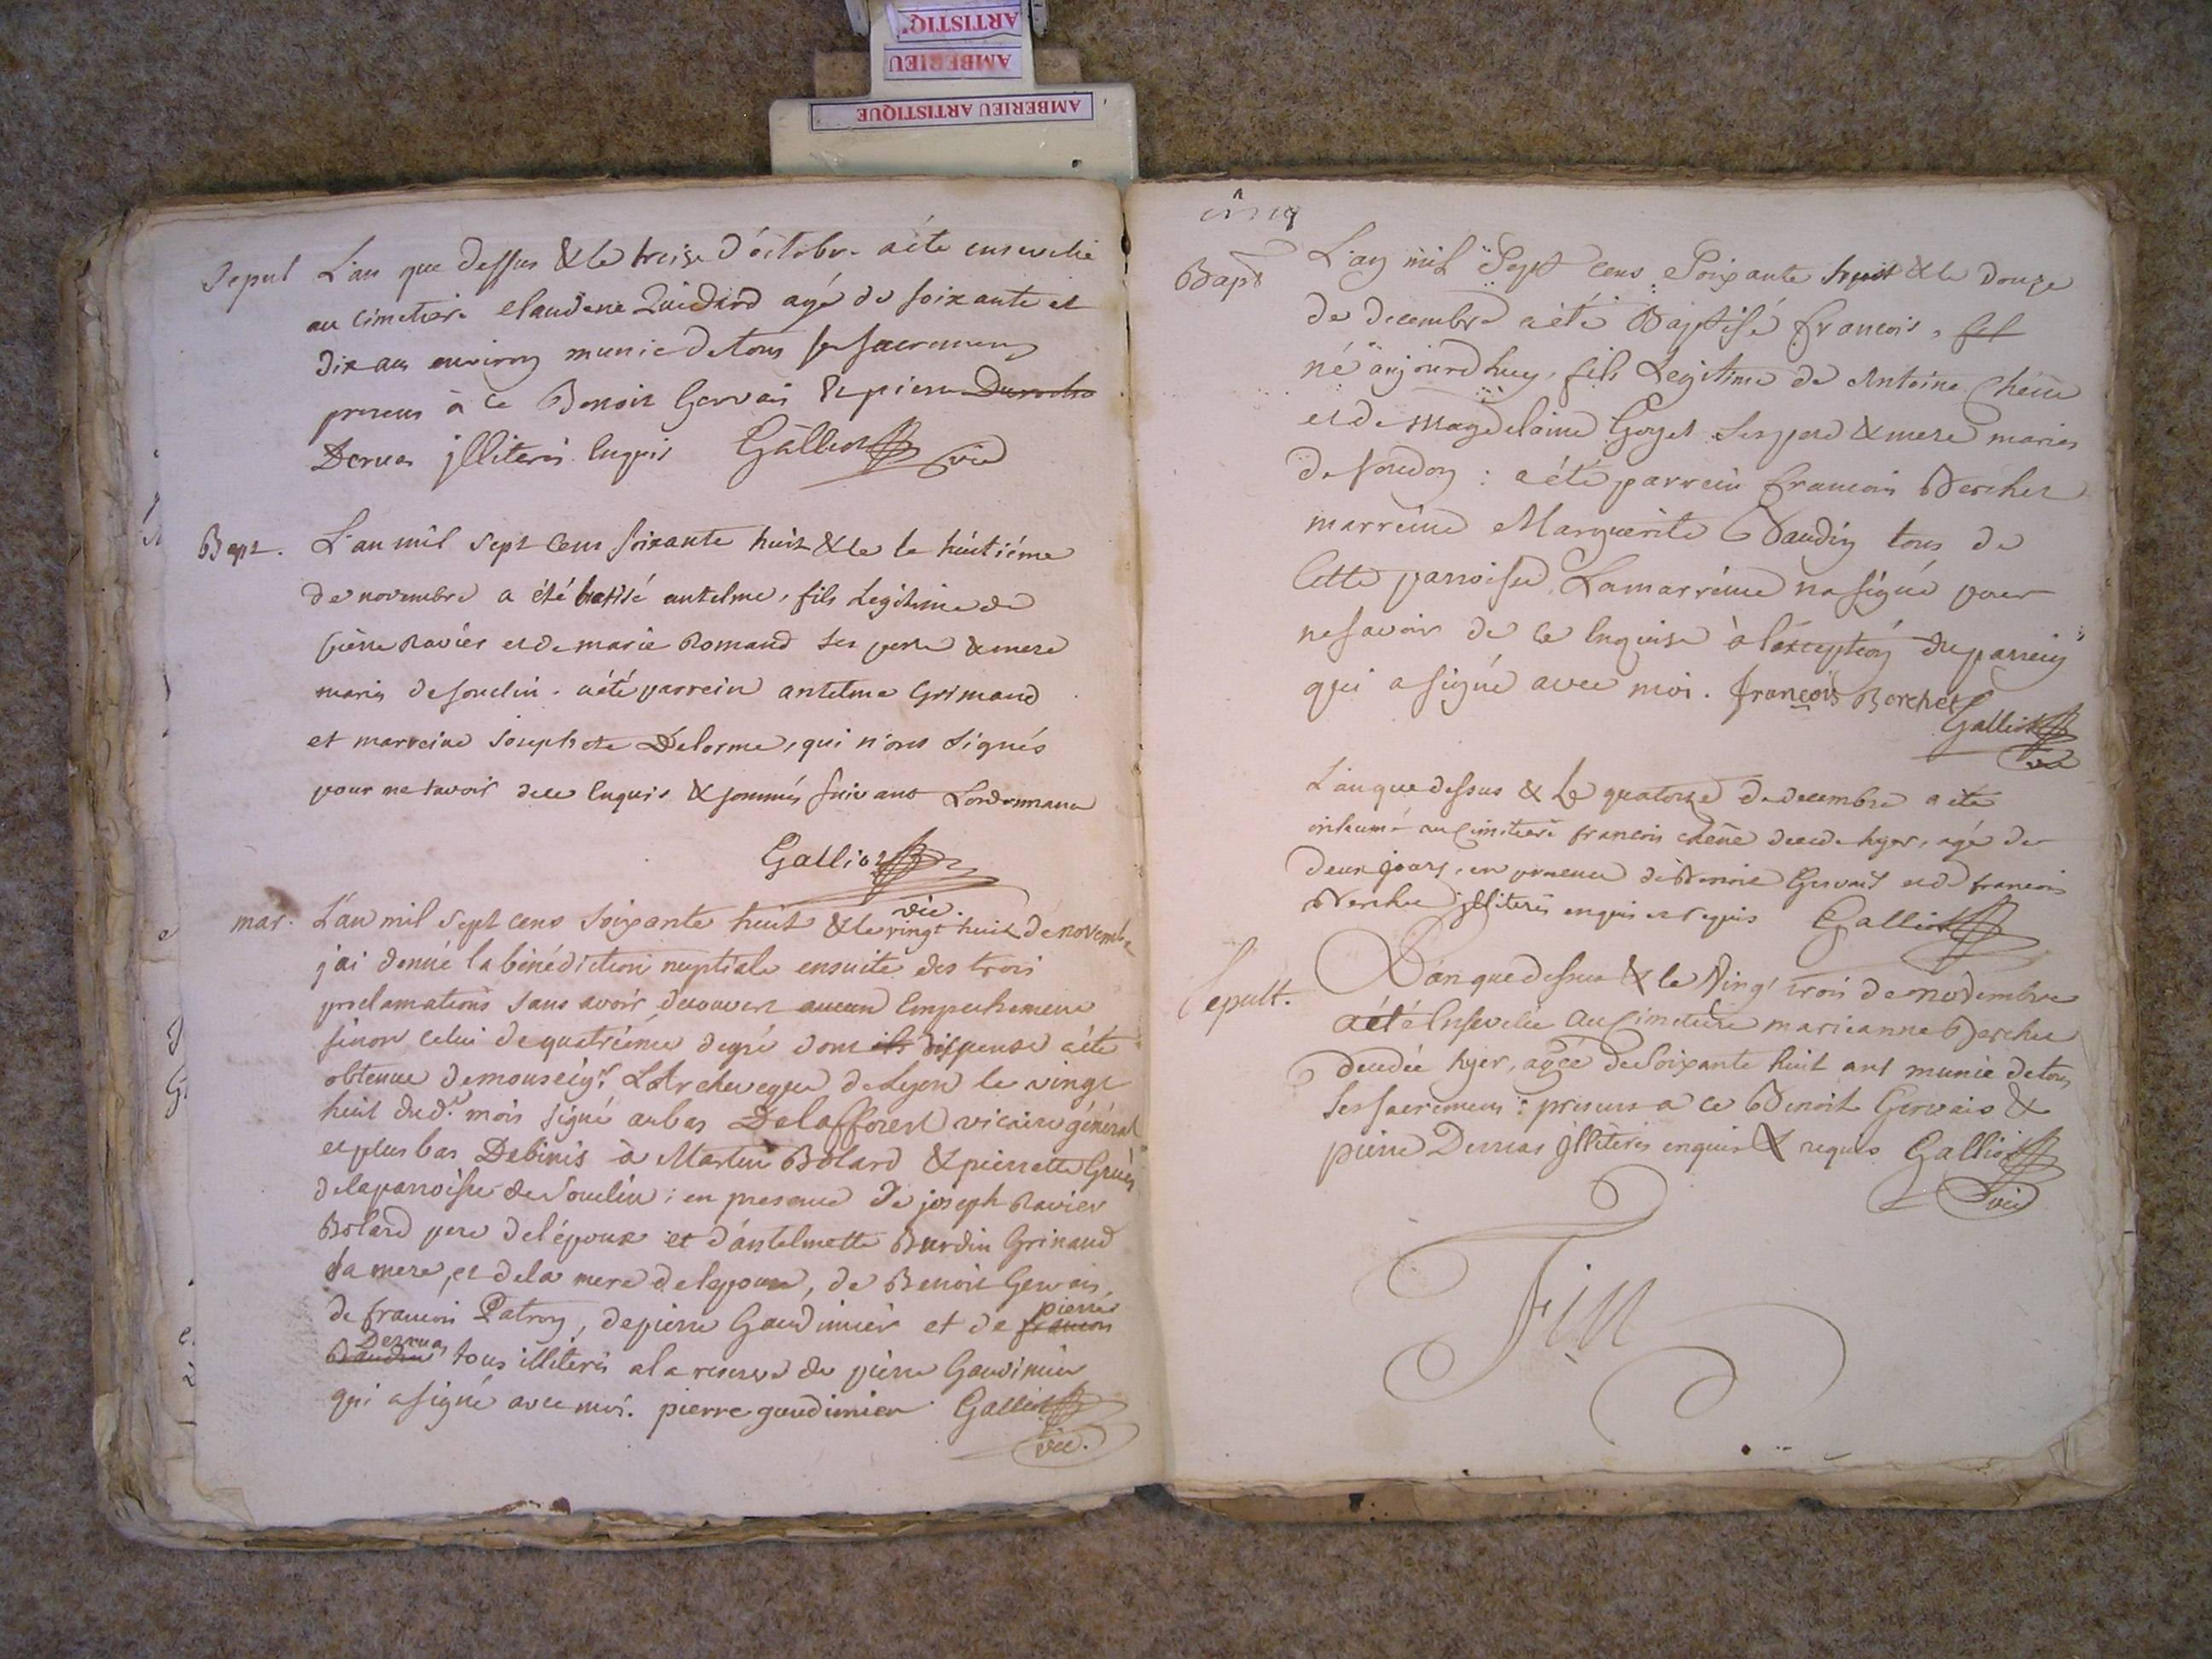 ARTISTIQ
AMBERIEU
AMBERIEU ARTISTIQUE
Sepul L'an que dessus & le treize d'octobre a été ensevelie
au cimetiere claudine Quidard agé de soixante et
dix ans environ munie de tous ses sacremens
presens à ce Benoit Gervais & pierre
Dervas jlliterés enquis Galliot vic
Bapt. L'an mil sept cens soixante huit & le le huitiéme
de novembre a été batisé antelme, fils Legitime de
pierre Ravier et de marie Romand ses pere & mere
mariés de souclin. a été parrein antelme Grimaud
et marreine Josephete Delorme, qui n'ont signés
pour ne savoir de ce enquis & sommés suivant Lordonnance
Galliot
vic.
mar. L'an mil sept cens soixante huit & le vingt huit de novembre
j'ai donné la bénédiction nuptiale ensuite des trois
proclamations sans avoir decouvert aucun Empechement
sinon celui de quatriéme degré dont ils dispense a été
obtenue de monseigr. L'Archeveque de Lyon le vingt
huit dud. mois signé au bas Delafforest vicaire général
et plus bas Debinis à Martin Bolard & pierrette
de la parroisse de Souclin: en presence de joseph Ravier
Bolard pere de l'époux et d'antelmette Burdin Grinaud
sa mere, et de la mere de lepouse, de Benoit Gervais,
de francois Patron, de pierre Gaudimier et de francois pierre
Baudin Dervas, tous illiterés a la reserve de pierre Gaudimier
qui a signé avec moi. pierre gaudimier Galliot
vic.
cinq
Bapt L'an mil Sept cens Soixante huit & le Douze
de decembre a été Baptisé francois, fil
né aujourd'huy, fils Legitime de Antoine Chêne
et de Magdelaine Goyet ses pere & mere mariés
de soudon: a été parrein francois Berchet
marreine Marguerite Baudin tous de
Cette parroisse, La marreine na signé pour
ne savoir de ce Enquise à l'exception du parrein
qui a signé avec moi. françois Berchet
Galliot
vic
L'an que dessus & Le quatorze de decembre a été
inhumé au Cimitiere francois chêne decedé hyer, agé de
deux jours, en presence de Benoit Gervais et de francois
Berchet jlliterés enquis et requis Galliot
Sepult. L'an que dessus & le Vingt trois de novembre
a été Ensevelie au Cimetiere marieanne Berchet
decedée hyer, agée de Soixante huit ans munie de tous
Ses sacremens: presens a ce Benoit Gervais &
pierre Dervas jlliterés enquis & requis Galliot
vic
Fin